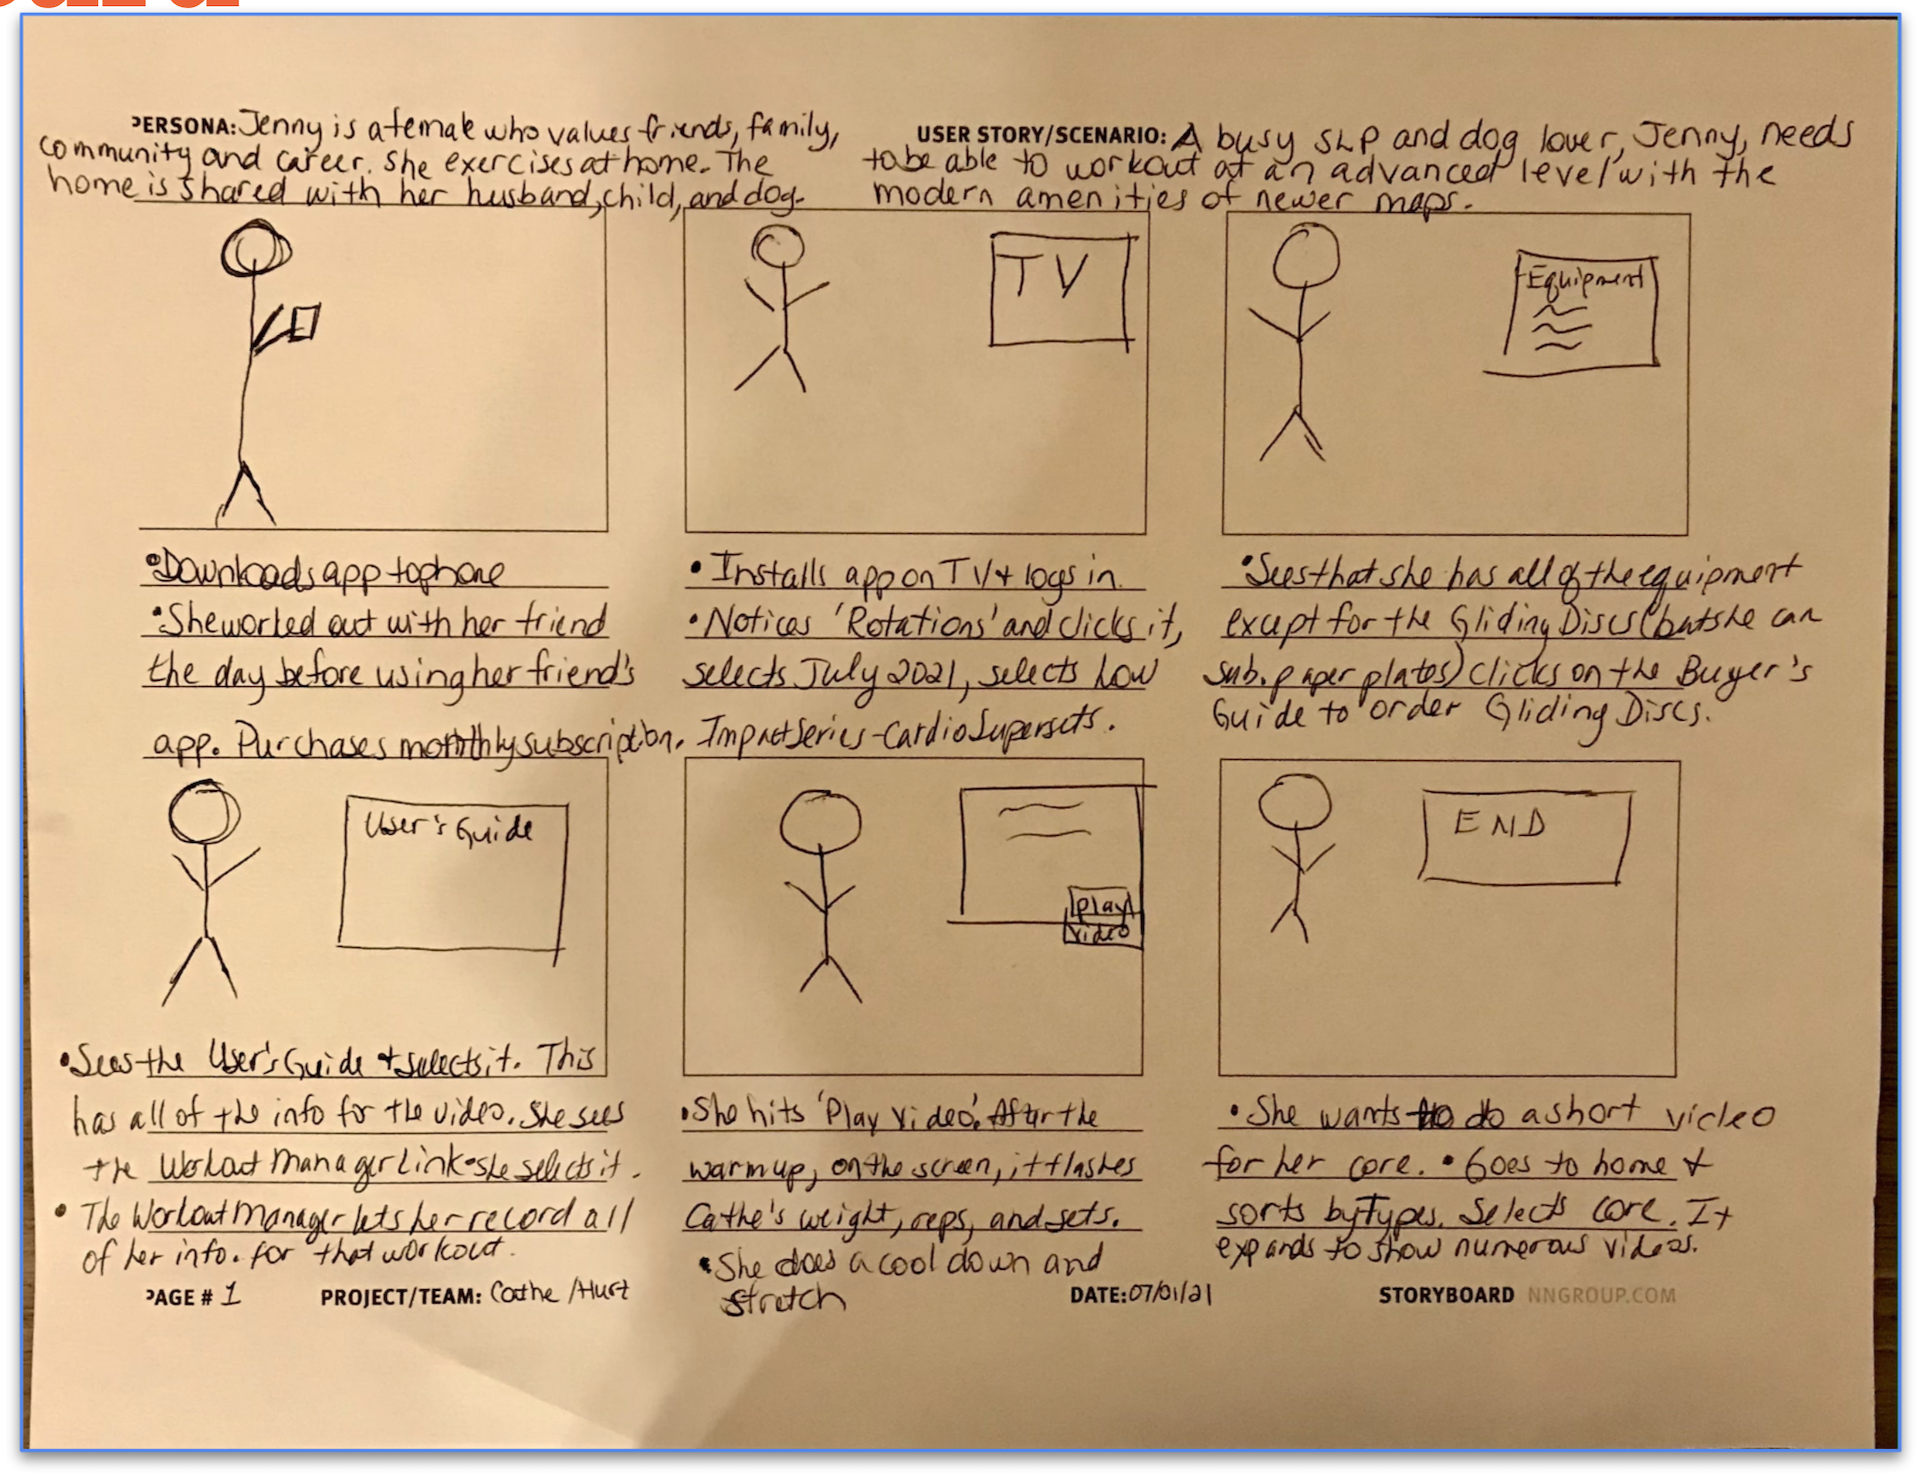 PERSONA: Jenny is a female who values friends, family,
community and career. She exercises at home. The
home is shared with her husband, child, and dog.
USER STORY/SCENARIO: A busy SLP and dog lover, Jenny, needs
to be able to workout at an advanced level with the
modern amenities of newer maps.
TV
Equipment
• Downloads app to phone
• She worked out with her friend
the day before using her friend's
app. Purchases monthly subscription.
• Installs app on TV + logs in.
• Notices 'Rotations' and clicks it,
selects July 2021, selects Low
Impact Series - Cardio Supersets.
• Sees that she has all of the equipment
except for the Gliding Discs (but she can
sub. paper plates) Clicks on the Buyer's
Guide to order Gliding Discs.
User's Guide
play
video
END
• Sees the User's Guide + selects it. This
has all of the info for the video. She sees
the Workout Manager Link • she selects it.
• The Workout Manager lets her record all
of her info. for that workout.
• She hits 'Play Video'. After the
warm up, on the screen, it flashes
Cathe's weight, reps, and sets.
• She does a cool down and
stretch
• She wants to do a short video
for her core. • Goes to home +
sorts by Types. Selects Core. It
expands to show numerous videos.
PAGE # 1
PROJECT/TEAM: Cathe / Hurt
DATE: 07/01/21
STORYBOARD NNGROUP.COM